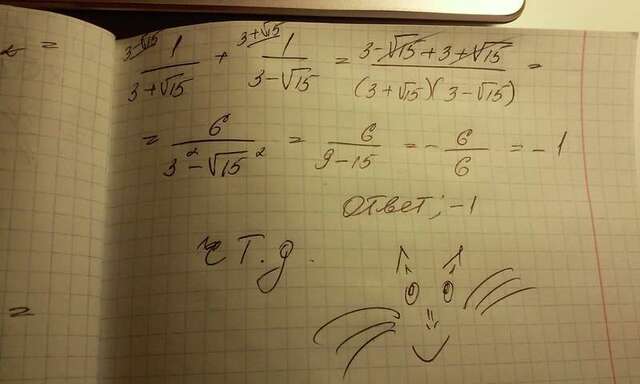 3-√15 3+√15
1/(3+√15) + 1/(3-√15) = (3-√15+3+√15)/((3+√15)(3-√15)) =
= 6/(3²-√15²) = 6/(9-15) = -6/6 = -1
Ответ: -1
ч.т.д.
=